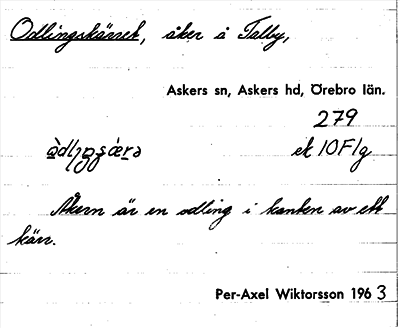 Odlingskärret, åker å Tälby,
Askers sn, Askers hd, Örebro län.
279
ek 10F1g
Åkern är en odling i kanten av ett
kärr.
Per-Axel Wiktorsson 1963